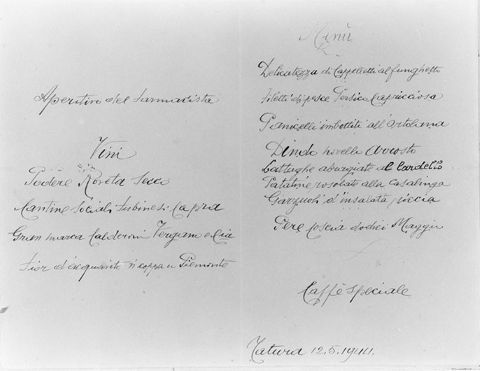 Aperitivo del farmacista
Vini
Podere Roveta Secco
Cantine Sociali Turbinesi Capra
Gran marca Calderoni
Fior d'acquavite Piemonte
Menù
Delicatezza di Cappelletti al funghetto
Filetti di pesce Persico Capricciosa
Panicelli imbottiti all'Ortolana
Dindo novello Arrosto
Lattughe al Cardello
Patatine rosolate alla Casalinga
d'insalata riccia
Pere coscia dodici Maggio
Caffè speciale
Tatura 12.5.1944.